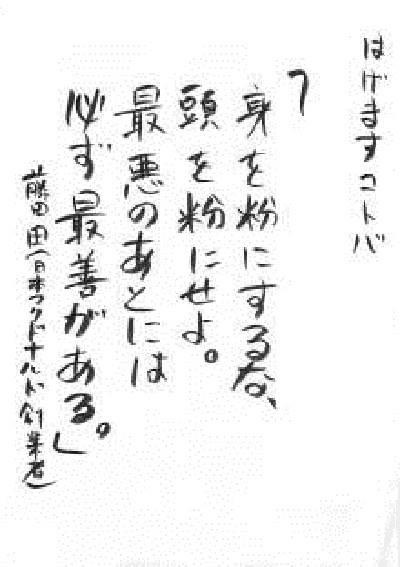 はげますコトバ
「身を粉にするな、
頭を粉にせよ。
最悪のあとには
必ず最善がある。」
藤田 田(日本マクドナルド創業者)